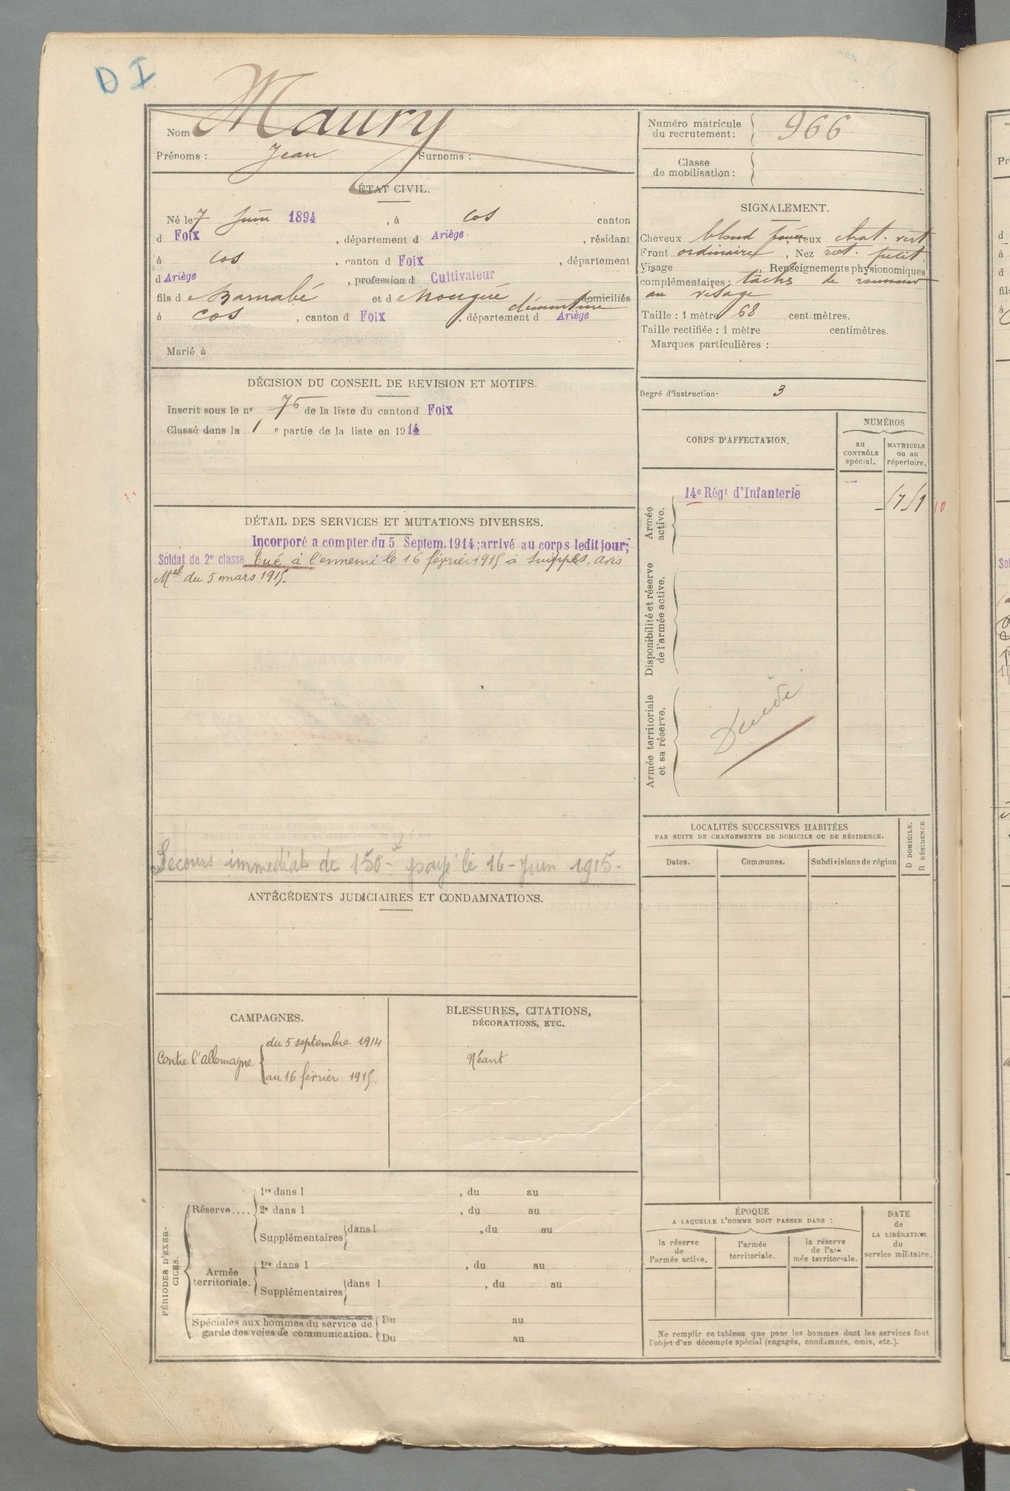 D I
Nom Maury
Prénoms : Jean Surnoms :
ÉTAT CIVIL.
Né le 7 Juin 1894, à Cos canton
d Foix, département d Ariège, résidant
à Cos, canton d Foix, département
d Ariège, profession d Cultivateur
fils de Barnabé et de Rougée démentine domiciliés
à Cos, canton d Foix, département d Ariège
Marié à
DÉCISION DU CONSEIL DE REVISION ET MOTIFS.
Inscrit sous le n° 75 de la liste du canton d Foix
Classé dans la 1 e partie de la liste en 1914
DÉTAIL DES SERVICES ET MUTATIONS DIVERSES.
Incorporé a compter du 5 Septem. 1914; arrivé au corps ledit jour;
Soldat de 2e classe tué à l'ennemi le 16 février 1915 à Suippes, avis
Mel du 5 mars 1915.
Secours immédiat de 150 f payé le 16 - Juin 1915 -
ANTÉCÉDENTS JUDICIAIRES ET CONDAMNATIONS.
CAMPAGNES.
Contre l'allemagne { du 5 septembre 1914
au 16 février 1915.
BLESSURES, CITATIONS,
DÉCORATIONS, ETC.
Néant
PÉRIODES D'EXERCICES.
Réserve....
1re dans l , du au
2e dans l , du au
Supplémentaires { dans l , du au
Armée territoriale.
1re dans l , du au
Supplémentaires { dans l , du au
Spéciales aux hommes du service de
garde des voies de communication.
Du au
Du au
Numéro matricule
du recrutement : 966
Classe
de mobilisation :
SIGNALEMENT.
Cheveux blond foncé, Yeux chat. vert
Front ordinaire, Nez rect. petit
Visage Renseignements physionomiques
complémentaires : taches de rousseur
au visage
Taille : 1 mètre 68 centimètres.
Taille rectifiée : 1 mètre centimètres.
Marques particulières :
Degré d'instruction : 3
CORPS D'AFFECTATION.
NUMÉROS
au
CONTRÔLE
spécial.
MATRICULE
ou au
répertoire.
Armée
active.
14e Régt d'Infanterie
Disponibilité et réserve
de l'armée active.
Armée territoriale
et sa réserve.
LOCALITÉS SUCCESSIVES HABITÉES
PAR SUITE DE CHANGEMENTS DE DOMICILE OU DE RÉSIDENCE.
Dates. Communes. Subdivisions de région
D DOMICILE.
R RÉSIDENCE.
ÉPOQUE
A LAQUELLE L'HOMME DOIT PASSER DANS :
la réserve
de
l'armée active.
l'armée
territoriale.
la réserve
de l'armée territoriale.
DATE
de
LA LIBÉRATION
du
service militaire.
Ne remplir ce tableau que pour les hommes dont les services font
l'objet d'un décompte spécial (engagés, condamnés, omis, etc.).